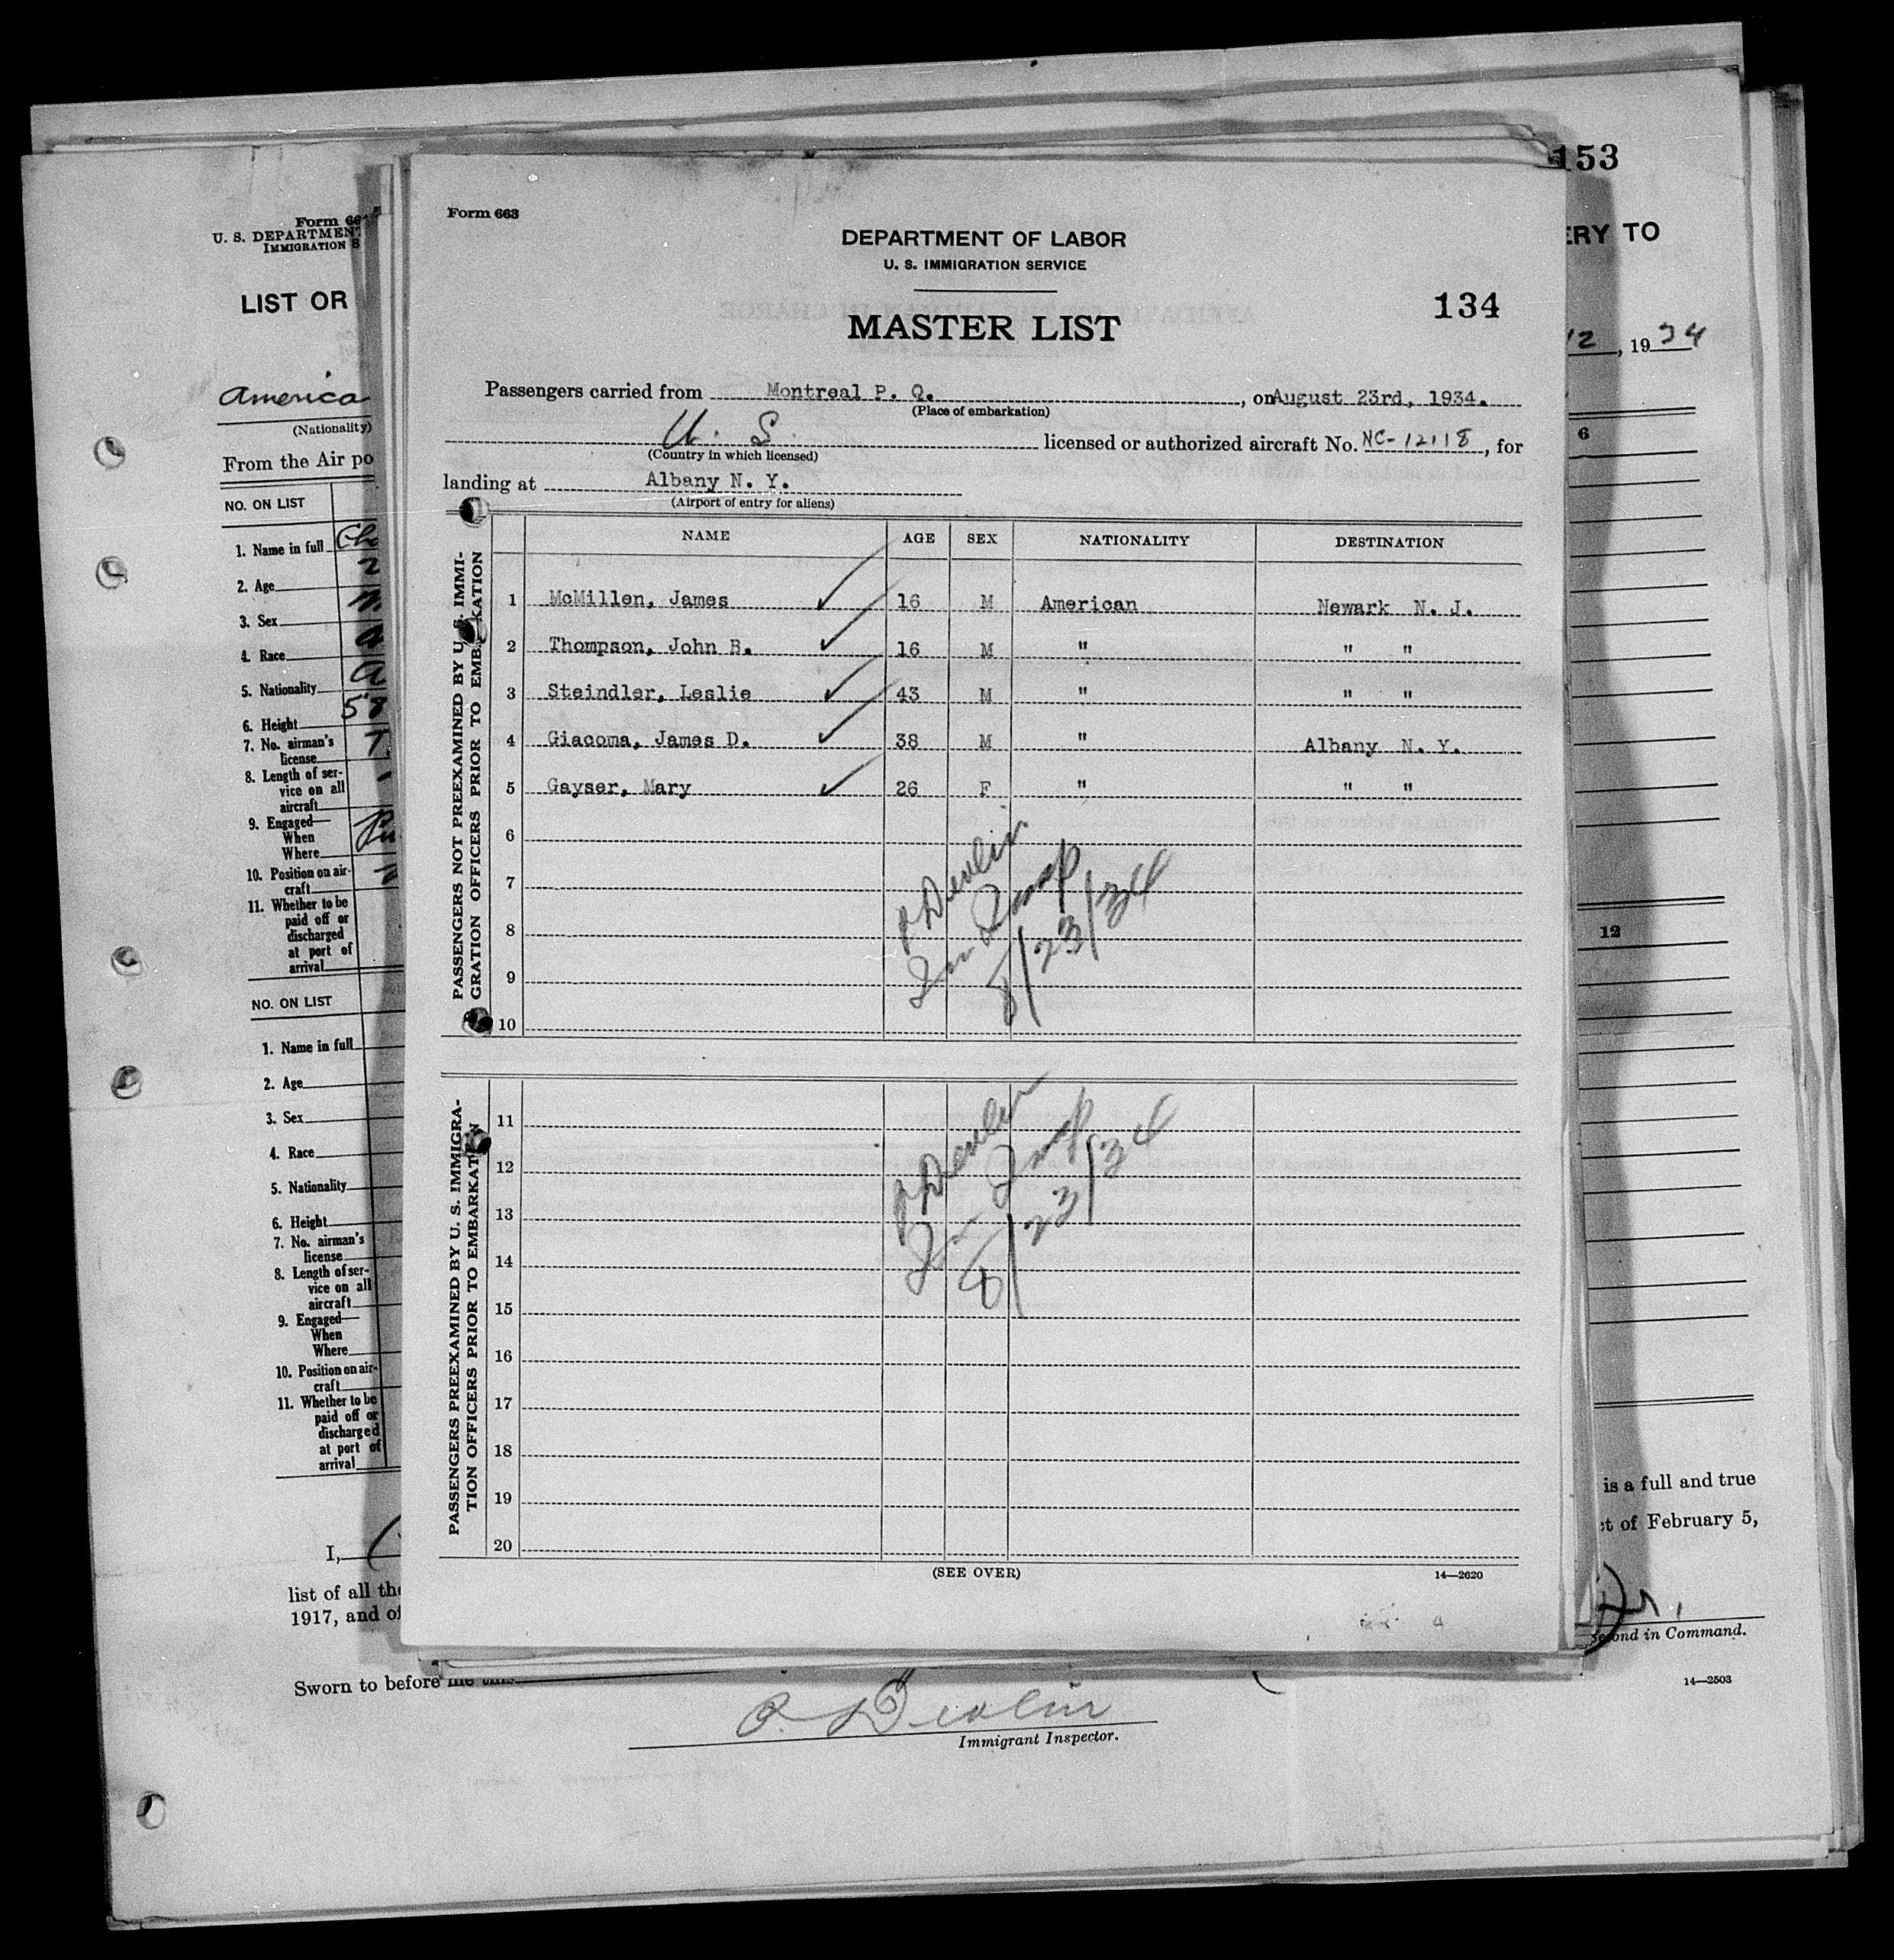 153
ERY TO
12, 1934
6
12
is a full and true
ct of February 5,
Second in Command.
14—2503
Form 66
U. S. DEPARTMENT
IMMIGRATION S
LIST OR
America
(Nationality)
From the Air po
NO. ON LIST
1. Name in full
2. Age
3. Sex
4. Race
5. Nationality
6. Height
7. No. airman's
license
8. Length of ser-
vice on all
aircraft
9. Engaged—
When
Where
10. Position on air-
craft
11. Whether to be
paid off or
discharged
at port of
arrival
NO. ON LIST
1. Name in full
2. Age
3. Sex
4. Race
5. Nationality
6. Height
7. No. airman's
license
8. Length of ser-
vice on all
aircraft
9. Engaged—
When
Where
10. Position on air-
craft
11. Whether to be
paid off or
discharged
at port of
arrival
I,
list of all the
1917, and of
Sworn to before me this
P. Devlin
Immigrant Inspector.
Form 663
DEPARTMENT OF LABOR
U. S. IMMIGRATION SERVICE
134
MASTER LIST
Passengers carried from Montreal P. Q., on August 23rd, 1934.
(Place of embarkation)
U. S. licensed or authorized aircraft No. NC-12118, for
(Country in which licensed)
landing at Albany N. Y.
(Airport of entry for aliens)
NAME AGE SEX NATIONALITY DESTINATION
PASSENGERS NOT PREEXAMINED BY U. S. IMMI-
GRATION OFFICERS PRIOR TO EMBARKATION
1 McMillen, James 16 M American Newark N. J.
2 Thompson, John B. 16 M " " "
3 Steindler, Leslie 43 M " " "
4 Giacoma, James D. 38 M " Albany N. Y.
5 Gayser, Mary 26 F " " "
6
7
8
9
10
P Devlin
Im Insp
8/23/34
PASSENGERS PREEXAMINED BY U. S. IMMIGRA-
TION OFFICERS PRIOR TO EMBARKATION
11
12
13
14
15
16
17
18
19
20
P Devlin
Im Insp
8/23/34
(SEE OVER)
14—2620